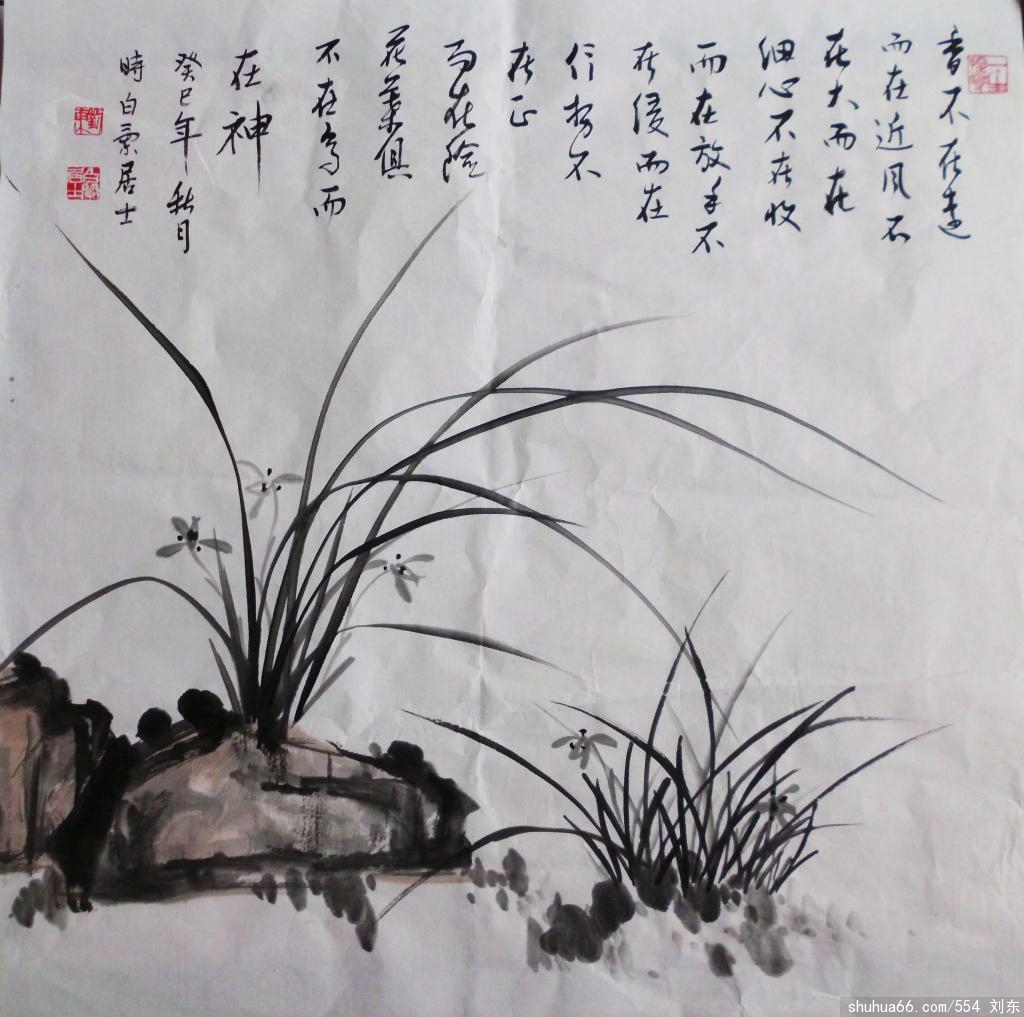 香不在遠
而在近风不
在大而在
细心不在收
而在放手不
在缓而在
行不
在正
而在险
花葉俱
不在而
在神
癸巳年秋月
時白居士
shuhua66.com/554 刘东